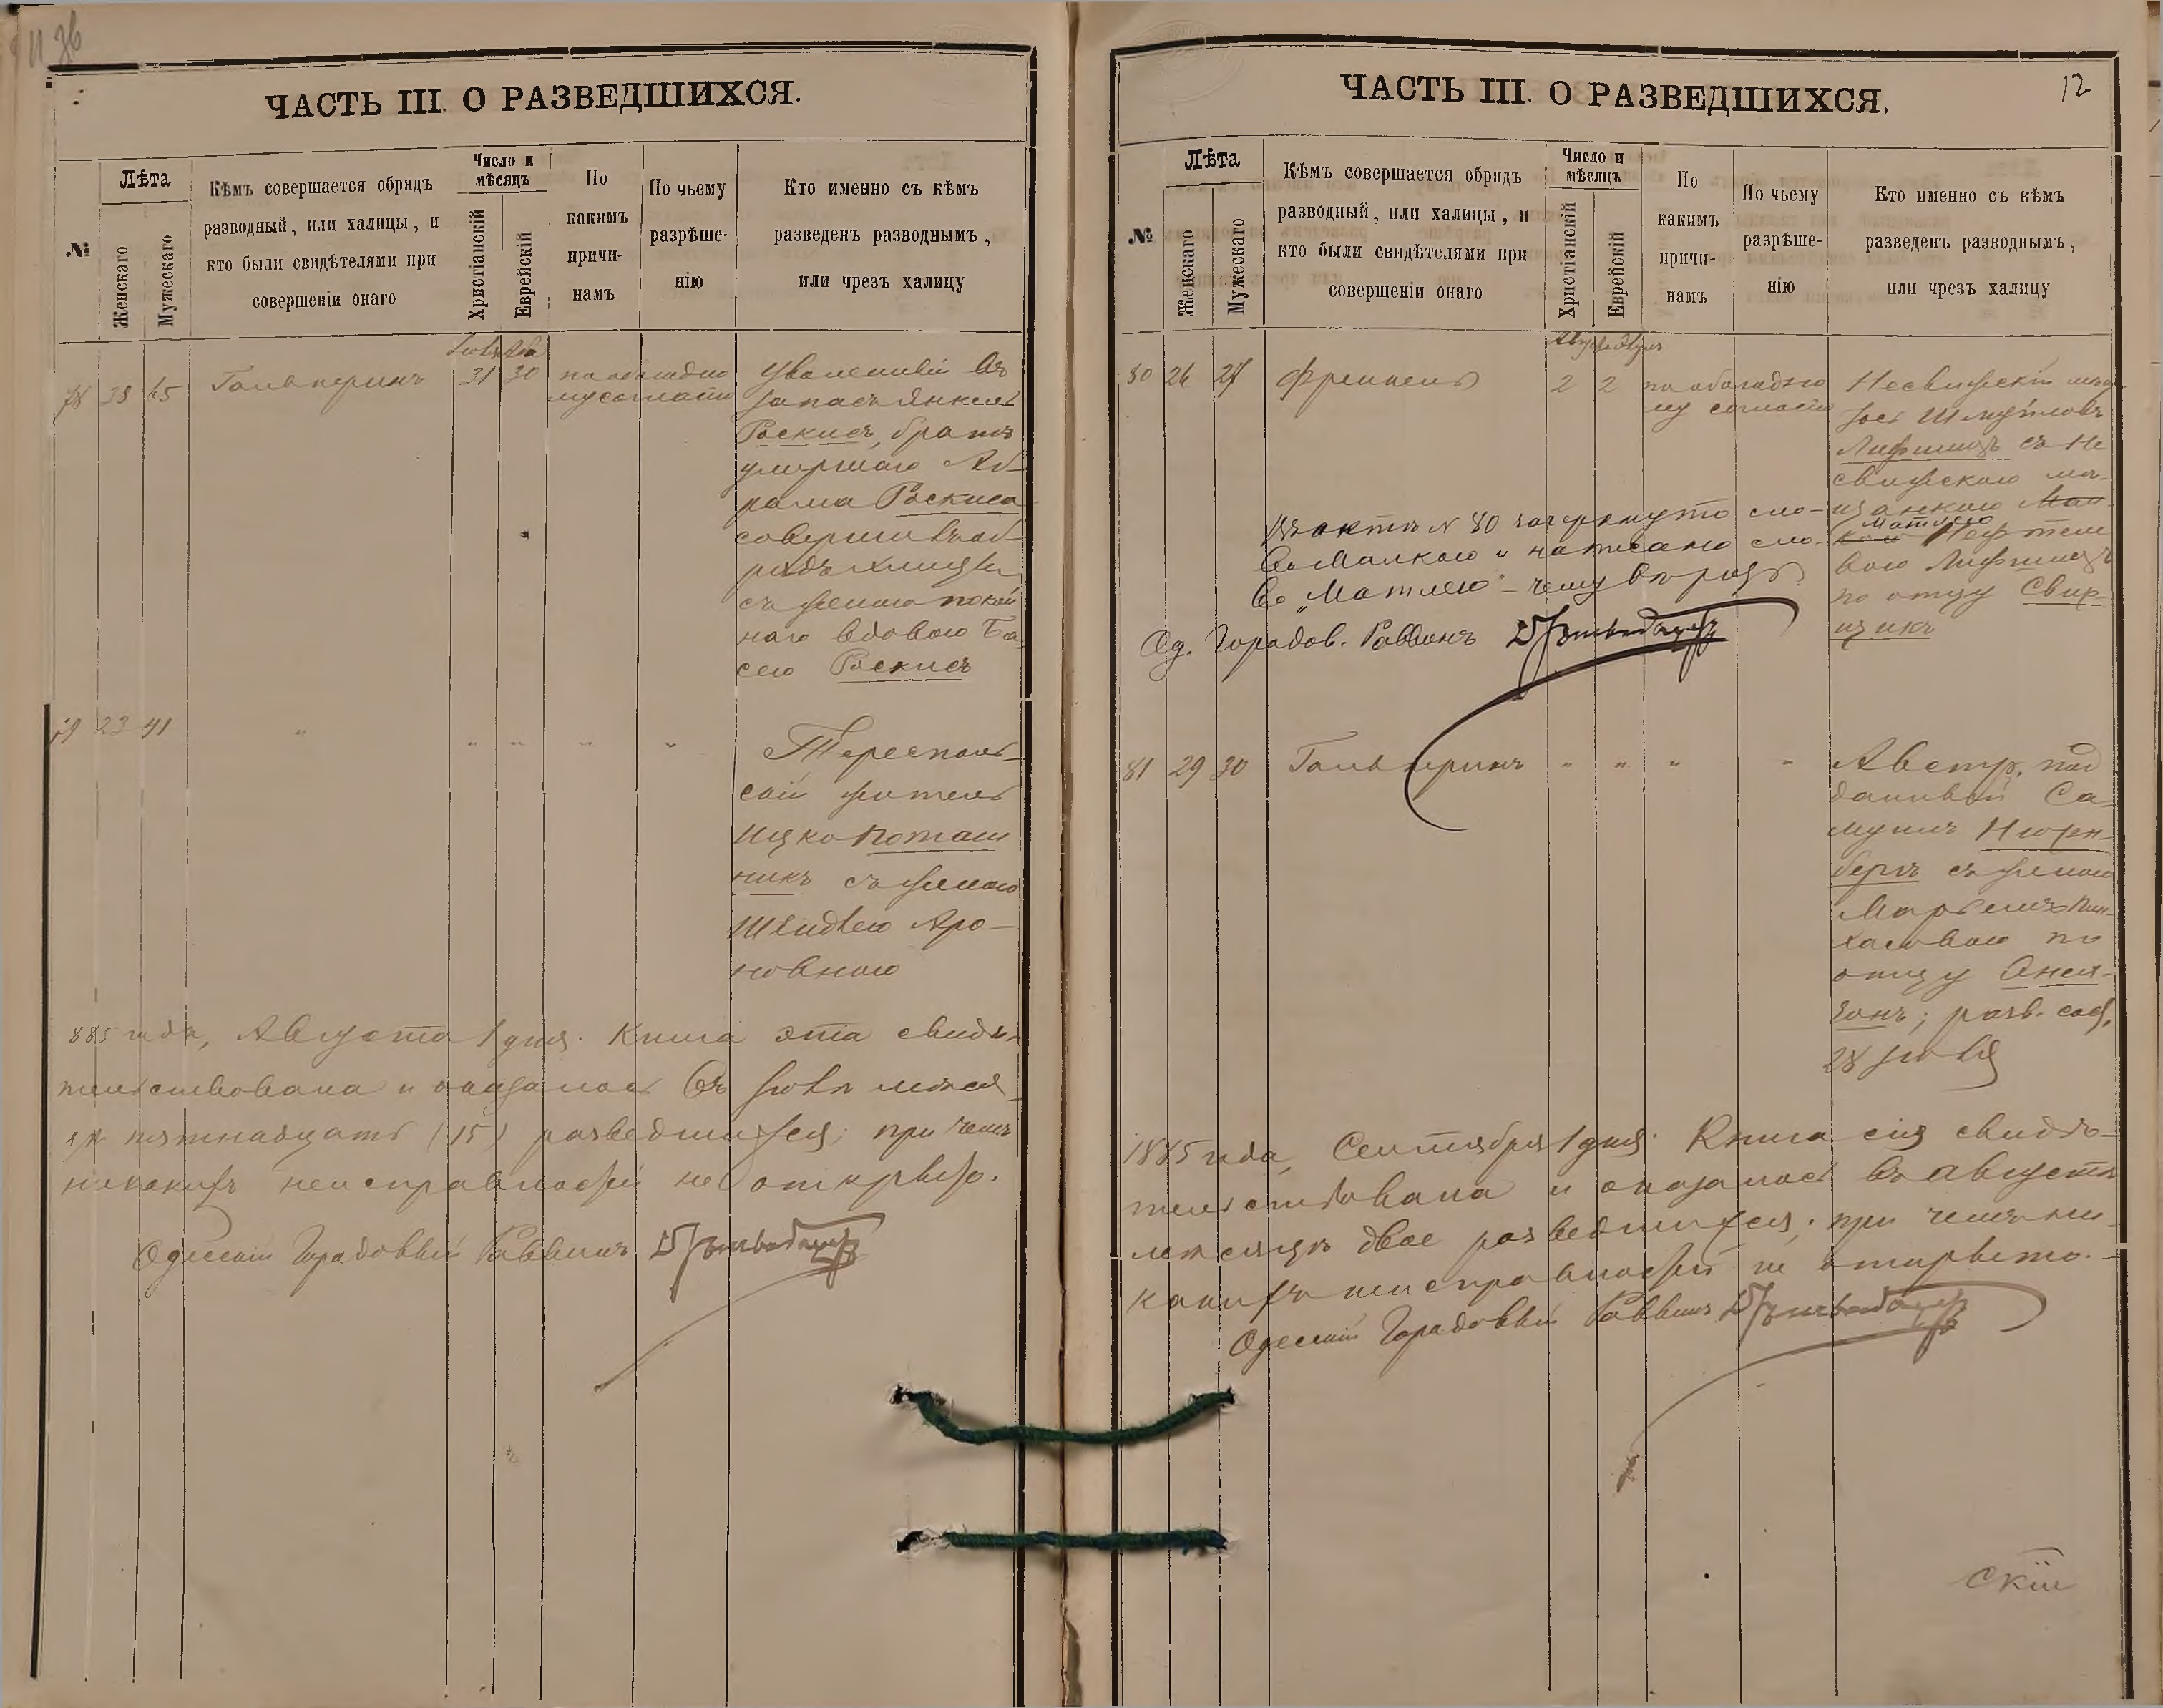 ЧАСТЬ III. О РАЗВЕДШИХСЯ.
№
Лѣта
Женскаго
Мужескаго
Кѣмъ совершается обрядъ
разводный, или халицы, и
кто были свидѣтелями при
совершеніи онаго
Число и
мѣсяцъ
Христіанскій
Еврейскій
По
какимъ
причи-
намъ
По чьему
разрѣше-
нію
Кто именно съ кѣмъ
разведенъ разводнымъ,
или чрезъ халицу
78 38 45 Гальперинъ 31 30 по обоюдно
му согласію
Уволенный въ
запасъ Янкель
Роскисъ, братъ
умершаго Аб-
рама Роскиса
совершилъ об-
рядъ халицы
съ женою покой
наго вдовою Ба-
сею Роскисъ
79 23 41 " " " " "
Тересполь-
скій житель
Ицко Поташ
никъ съ женою
Шейндлею Аро-
новною
885 года, Августа 1 дня. Книга эта свидѣ-
тельствована и оказалось въ Іюлѣ меся-
цѣ пятнадцать (15) разведшихся; при чемъ
никакихъ неисправностей не открыто.
Одесскій Городовый Раввинъ
ЧАСТЬ III. О РАЗВЕДШИХСЯ.
12
№
Лѣта
Женскаго
Мужескаго
Кѣмъ совершается обрядъ
разводный, или халицы, и
кто были свидѣтелями при
совершеніи онаго
Число и
мѣсяцъ
Христіанскій
Еврейскій
По
какимъ
причи-
намъ
По чьему
разрѣше-
нію
Кто именно съ кѣмъ
разведенъ разводнымъ,
или чрезъ халицу
80 26 27 Френкель 2 2 по обоюдно
му согласію
Несвижскій мѣщ.
Лифшицъ съ Не
свижскою мѣ-
щанкою Мал-
кою Матлею
вою Лифшицъ
по отцу Свир-
щикъ
Въ актѣ № 80 зачеркнуто сло-
во Малкою и написано сло-
во "Матлею" - чему вѣрить.
Од. Городов. Раввинъ
81 29 30 Гальперинъ " " " "
Австр. под
данный Са-
муилъ Нюрен-
бергъ съ женою
хасовою по
отцу
28 Іюля
1885 года, Сентября 1 дня. Книга сія свидѣ-
тельствована и оказалось въ августѣ
месяцѣ двое разведшихся; при чемъ ни-
какихъ неисправностей не открыто.-
Одесскій Городовый Раввинъ
скій